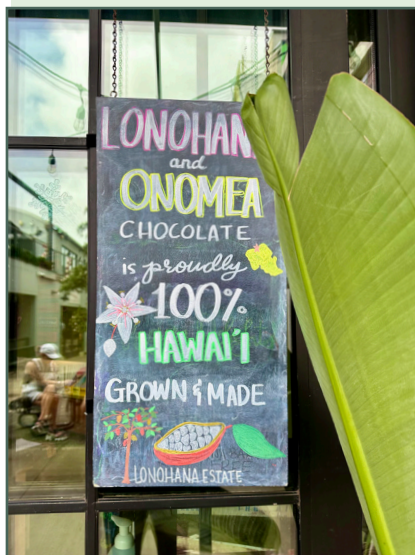 LONOHAN
and
ONOMEA
CHOCOLATE
is proudly
100%
HAWAI'I
GROWN & MADE
LONOHANA ESTATE